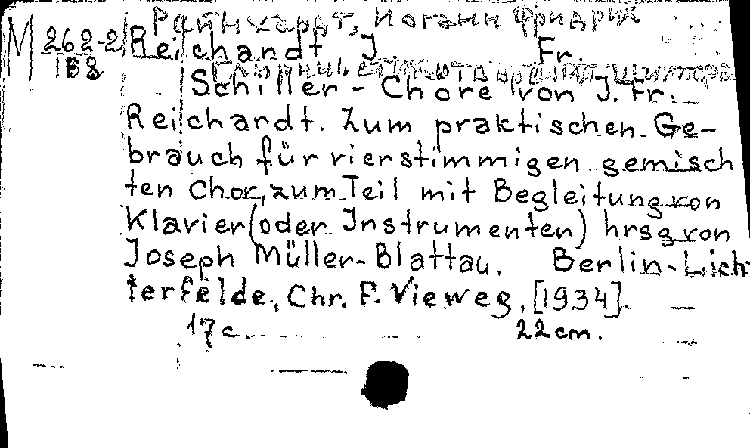 Рейнхардт, Иоганн Фридрих
M 262-2 Reichardt J. Fr.
IB8
Schiller-Chöre von J. Fr.
Reichardt. Zum praktischen Ge-
brauch für vierstimmigen gemisch
ten Chor, zum Teil mit Begleitung von
Klavier (oder Instrumenten) hrsg von
Joseph Müller-Blattau. Berlin-Lich
terfelde, Chr. F. Vieweg, [1934].
17 c. 22 cm.